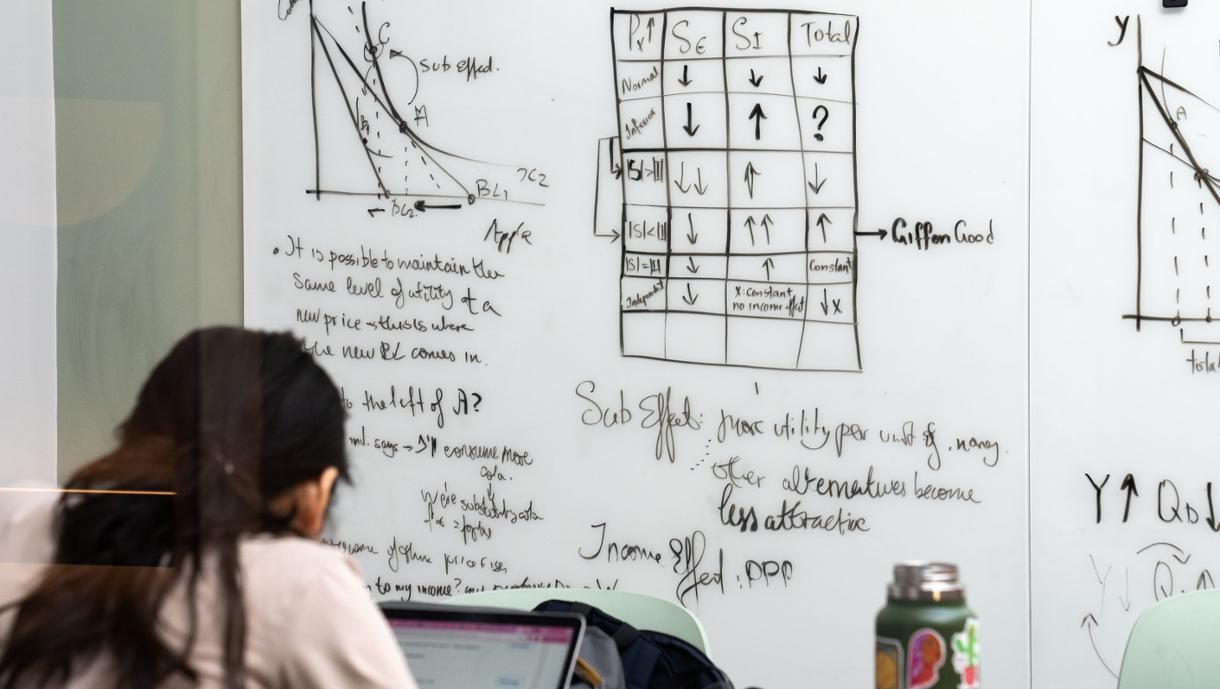 C
Sub Effect.
A
IC2
BL1
BL2
Apple
• It is possible to maintain the
Same level of utility at a
new price → this is where
the new BL comes in.
to the left of A?
says → I'll consume more
cola.
We're substituting cola
Px↑ SE SI Total
Normal ↓ ↓ ↓
Inferior ↓ ↑ ?
|S|>|I| ↓↓ ↑ ↓
|S|<|I| ↓ ↑↑ ↑ → Giffen Good
|S|=|I| ↓ ↑ Constant
Independent ↓ X:constant, ↓X
no income effect
Sub Effect: more utility per unit of money
other alternatives become
less attractive
Income Effect: PPP
y
A
Total
Y↑ QD↓
Y↓ Q↑